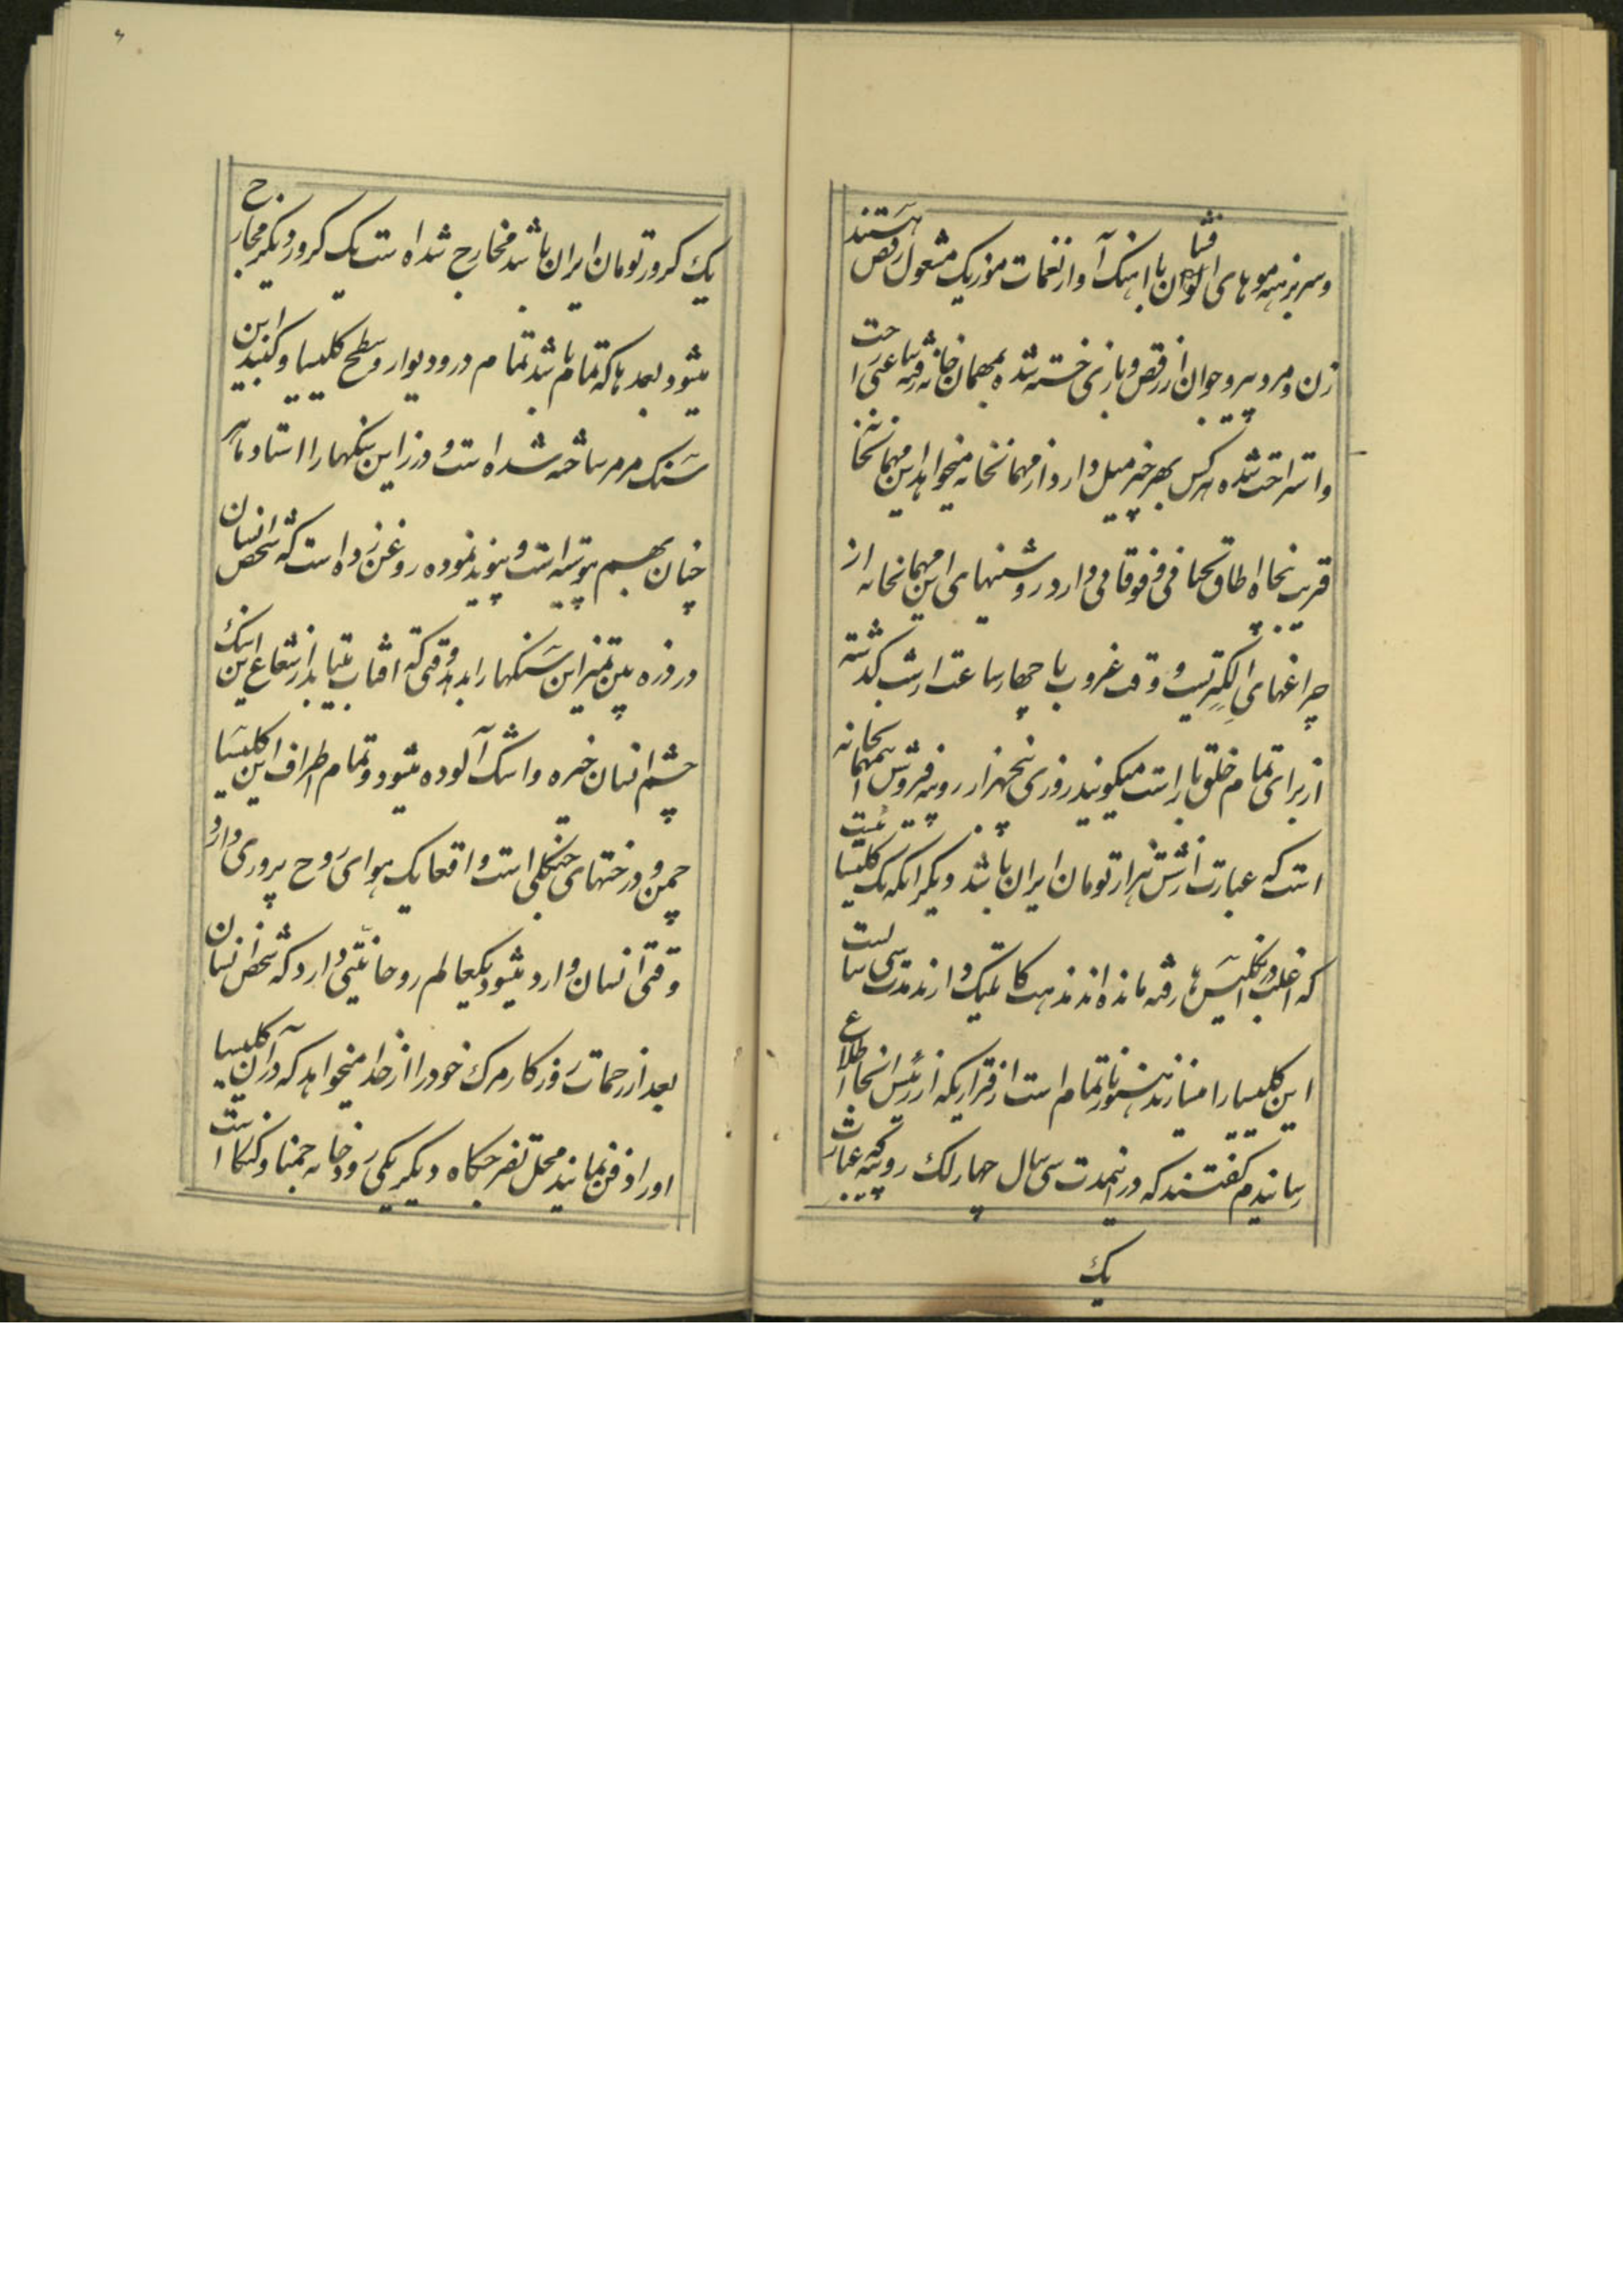 و سر برهنه موهای افشان با اهنک آواز نغمات موزیک مشغول رقص هستند
زن و مرد و پیر و جوان از رقص و بازی خسته شده بمهمان خانه رفته ساعتی راحت
و استراحت شده هر کس بهر چیز میل دارد از مهمانخانه میخواهد این مهمانخانه
قریب پنجاه اطاق تحتانی و فوقانی دارد روشنیهای این مهمانخانه از
چراغهای الکتریسته و وقت غروب با چهار ساعت از شب کذشته
از برای تمام خلق باز است میکویند روزی پنجهزار روپیه فروش مهمانخانه
است که عبارت از شش هزار تومان ایران باشد دیکر انکه یک کلیسا
که اغلب در انکلیس ها رفته مانده اند مذهب کاتلیک دارند مدت سی سالست
این کلیسا را میسازند هنوز ناتمام است از قراریکه از رئیس انجا اطلاع
رسانیدم کفتند که در اینمدت سی سال چهار لک روپیه عبارت
یک
یک کرور تومان ایران باشد مخارج شده است یک کرور دیکر مخارج
میشود بعدها که تمام باشد تمام در و دیوار و سطح کلیسا و کنبد این
سنک مرمر ساخته شده است و درز این سنکها را استاد ماهر
چنان بهم پیوسته است و پیوند نموده روغن زده است که شخص انسان
در ذره بین تمیز این سنکها را بدهد وقتی که افتاب بتابد از شعاع این سنک
چشم انسان خیره و اشک آلوده میشود و تمام اطراف این کلیسا
چمن و درختهای جنکلی است واقعا یک هوای روح پروری دارد
وقتی انسان وارد میشود یکعالم روحانیتی دارد که شخص انسان
بعد از زحمات روزکار مرک خود را از خدا میخواهد که در آن کلیسا
او را دفن نمایند محل تفرجکاه دیکر یکی رودخانه جمنا و کنکا است